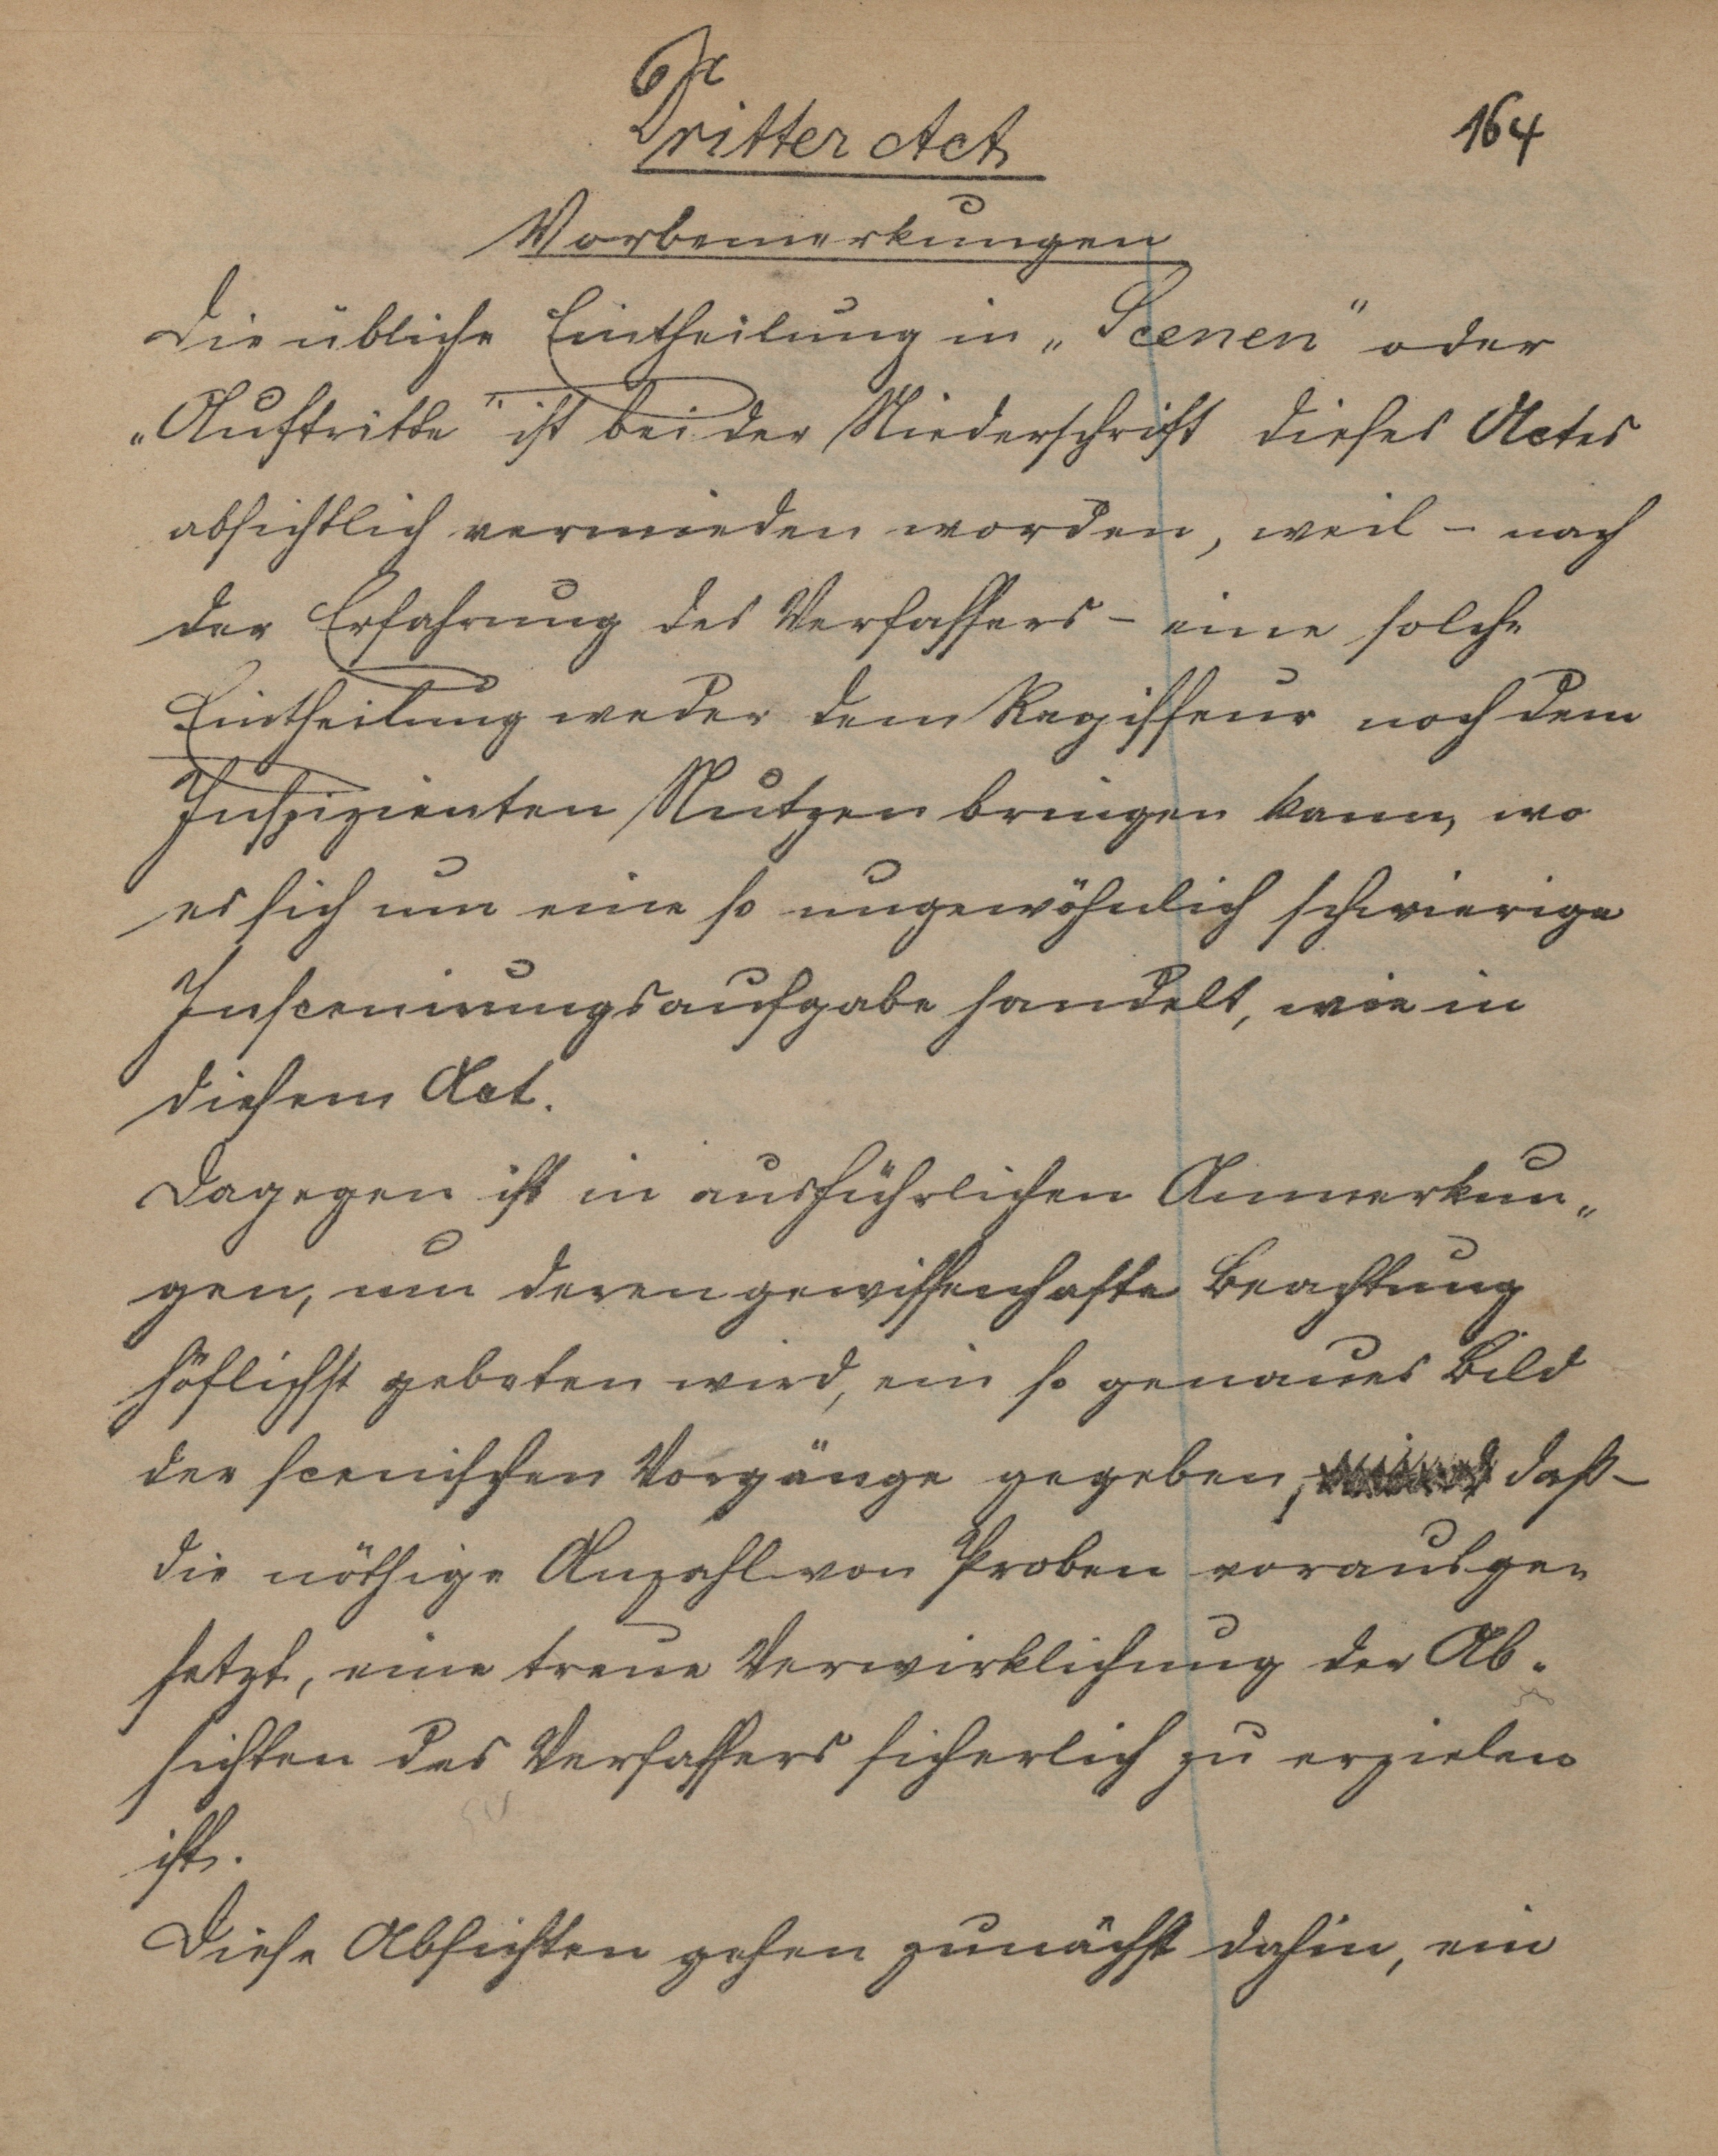 Dritter Act
164
Vorbemerkungen
Die übliche Eintheilung in „Scenen" oder
„Auftritte" ist bei der Niederschrift dieses Actes
absichtlich vermieden worden, weil – nach
der Erfahrung des Verfassers – eine solche
Eintheilung weder dem Regisseur noch dem
Inspizienten Nutzen bringen kann, wo
es sich um eine so ungewöhnlich schwierige
Inscenirungsaufgabe handelt, wie in
diesem Act.
Dagegen ist in ausführlichen Anmerkun„
gen, um deren gewissenhafte Beachtung
höflichst gebeten wird, ein so genaues Bild
der scenischen Vorgänge gegeben, daß –
die nöthige Anzahl von Proben vorausge„
setzt, eine treue Verwirklichung der Ab„
sichten des Verfassers sicherlich zu erzielen
ist.
Diese Absichten gehen zunächst dahin, ein